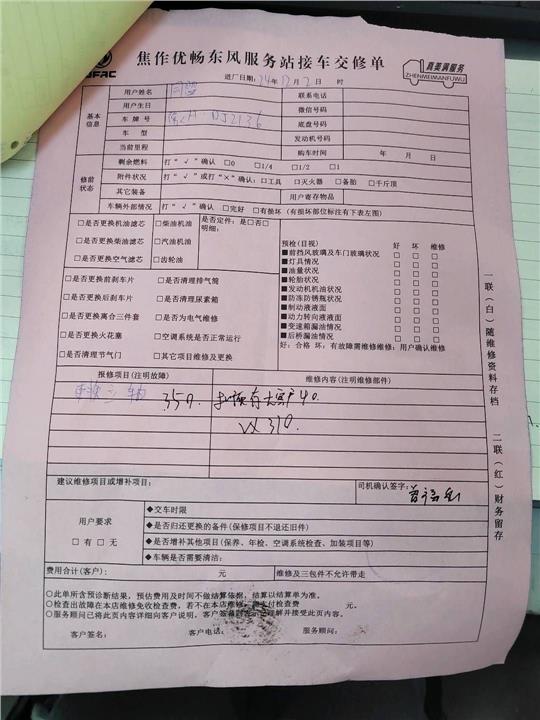 焦作优畅东风服务站接车交修单
真美满服务
ZHENMEIMANFUWU
进厂日期：24年12月2日 时
基本信息
用户姓名
联系电话
用户生日
微信号码
车牌号
底盘号码
车型
发动机号码
当前里程
购车时间 年 月 日
修前状态
剩余燃料 打“√”确认 □0 □1/4 □1/2 □1
附件状况 打“√”或打“×”确认：□工具 □灭火器 □备胎 □千斤顶
其它装备
用户寄存物品
车辆外部情况 打“√”确认 □完好 □有损坏（有损坏部位标注有下表左图）
□是否更换机油滤芯 □柴油机油 是否定件：是□否□
□是否更换柴油滤芯 □汽油机油 明细：
□是否更换空气滤芯 □齿轮油
预检(目视) 好 坏 维修
■前挡风玻璃及车门玻璃状况 □ □ □
■灯具情况 □ □ □
■油量状况 □ □ □
■轮胎状况 □ □ □
■发动机机油状况 □ □ □
■防冻防锈瓶状况 □ □ □
■制动液液面 □ □ □
■动力转向液液面 □ □ □
■变速箱漏油情况 □ □ □
■后桥漏油情况 □ □ □
好：合格 坏：有故障需维修维修：用户确认维修
□是否更换前刹车片 □是否清理排气筒
□是否更换后刹车片 □是否清理尿素箱
□是否更换离合三件套 □是否为电气维修
□是否更换火花塞 □空调系统是否正常运行
□是否清理节气门 □其它项目维修及更换
报修项目(注明故障)
维修内容(注明维修部件)
350.
310.
建议维修项目或增补项目：
司机确认签字：
用户要求
□有 □无
◆交车时限
◆是否归还更换的备件(保修项目不退还旧件)
◆是否增补其他项目(保养、年检、空调系统检查、加装项目等)
◆车辆是否需要清洁：
费用合计(客户)： 元
维修及三包件不允许带走
○此单所含预诊断结果，预估费用及时间不做结算依据，结算以结算单为准。
○检查出故障在本店维修免收检查费，若不在本店维修，需支付检查费 元。
○服务顾问已将此页内容详细向客户说明，客户签字确认已理解并接受此页内容。
客户签名： 客户电话： 服务顾问：
一联（白）随维修资料存档
二联（红）财务留存